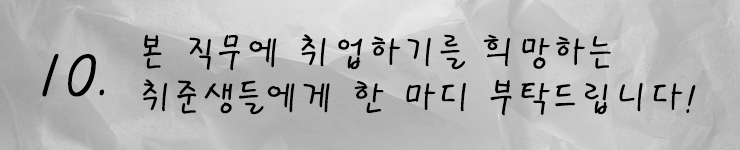 10. 본 직무에 취업하기를 희망하는
취준생들에게 한 마디 부탁드립니다!